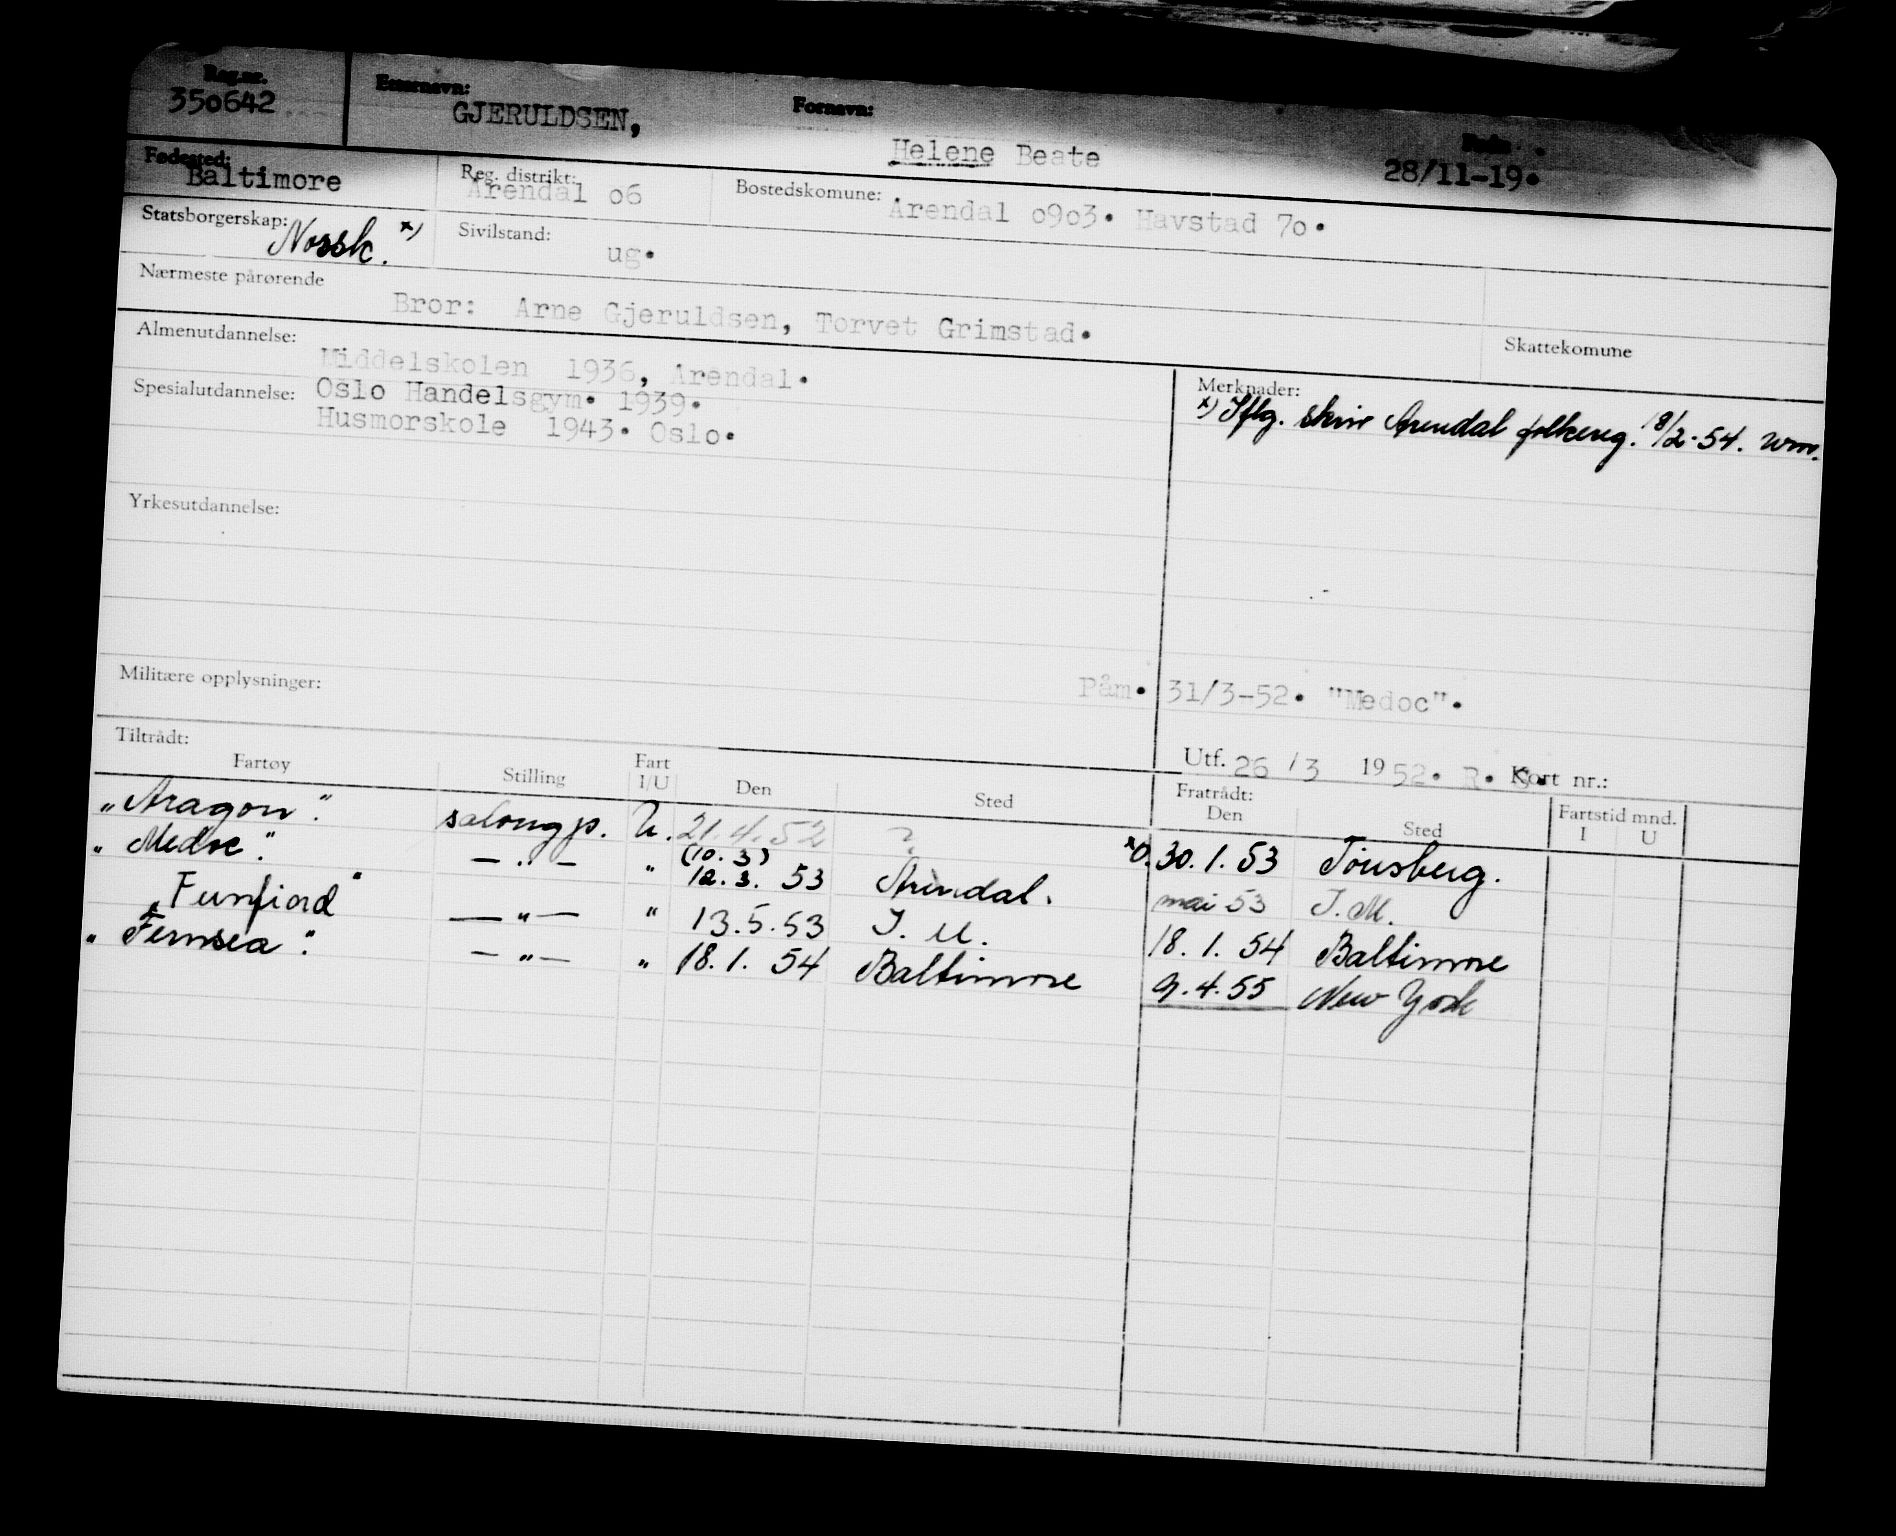 Reg.nr. Etternavn: Fornavn: Født
350642 GJERULDSEN, Helene Beate 28/11-19.
Fødested: Reg. distrikt: Bostedskomune:
Baltimore Arendal o6 Arendal o9o3. Havstad 7o.
Statsborgerskap: Norsk. x) Sivilstand: ug.
Nærmeste pårørende
Bror: Arne Gjeruldsen, Torvet Grimstad.
Skattekomune
Almenutdannelse: Middelskolen 1936, Arendal.
Spesialutdannelse: Oslo Handelsgym. 1939.
Husmorskole 1943. Oslo.
Merknader:
x) Iflg. skriv Arendal folkereg. 18/2-54. wm.
Yrkesutdannelse:
Militære opplysninger:
Påm. 31/3-52. "Medoc".
Utf. 26 / 3 1952. R. S. Kort nr.:
Tiltrådt: Fratrådt: Fartstid mnd.
Fartøy Stilling Fart I/U Den Sted Den Sted I U
"Aragon". salongp. U. 21.4.52 ? 30.1.53 Tønsberg.
"Medoc". — " — " (10.3) 12.3. 53 Arendal. mai 53 I.M.
"Fernfiord" — " — " 13.5.53 I. M. 18.1.54 Baltimore
"Fernsea". — " — " 18.1. 54 Baltimore 9.4.55 New York